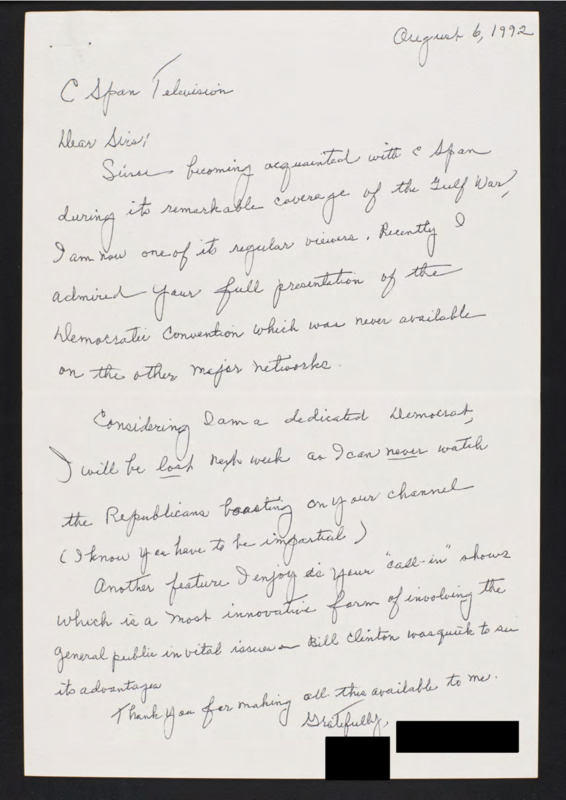 August 6, 1992
C Span Television
Dear Sirs:
Since becoming acquainted with C Span
during its remarkable coverage of the Gulf War,
I am now one of its regular viewers. Recently I
admired your full presentation of the
Democratic Convention which was never available
on the other major networks.
Considering I am a dedicated Democrat,
I will be lost next week as I can never watch
the Republicans boasting on your channel
(I know you have to be impartial)
Another feature I enjoy is your "call-in" shows
which is a most innovative form of involving the
general public in vital issues - Bill Clinton was quick to see
its advantages
Thank you for making all this available to me.
Gratefully,